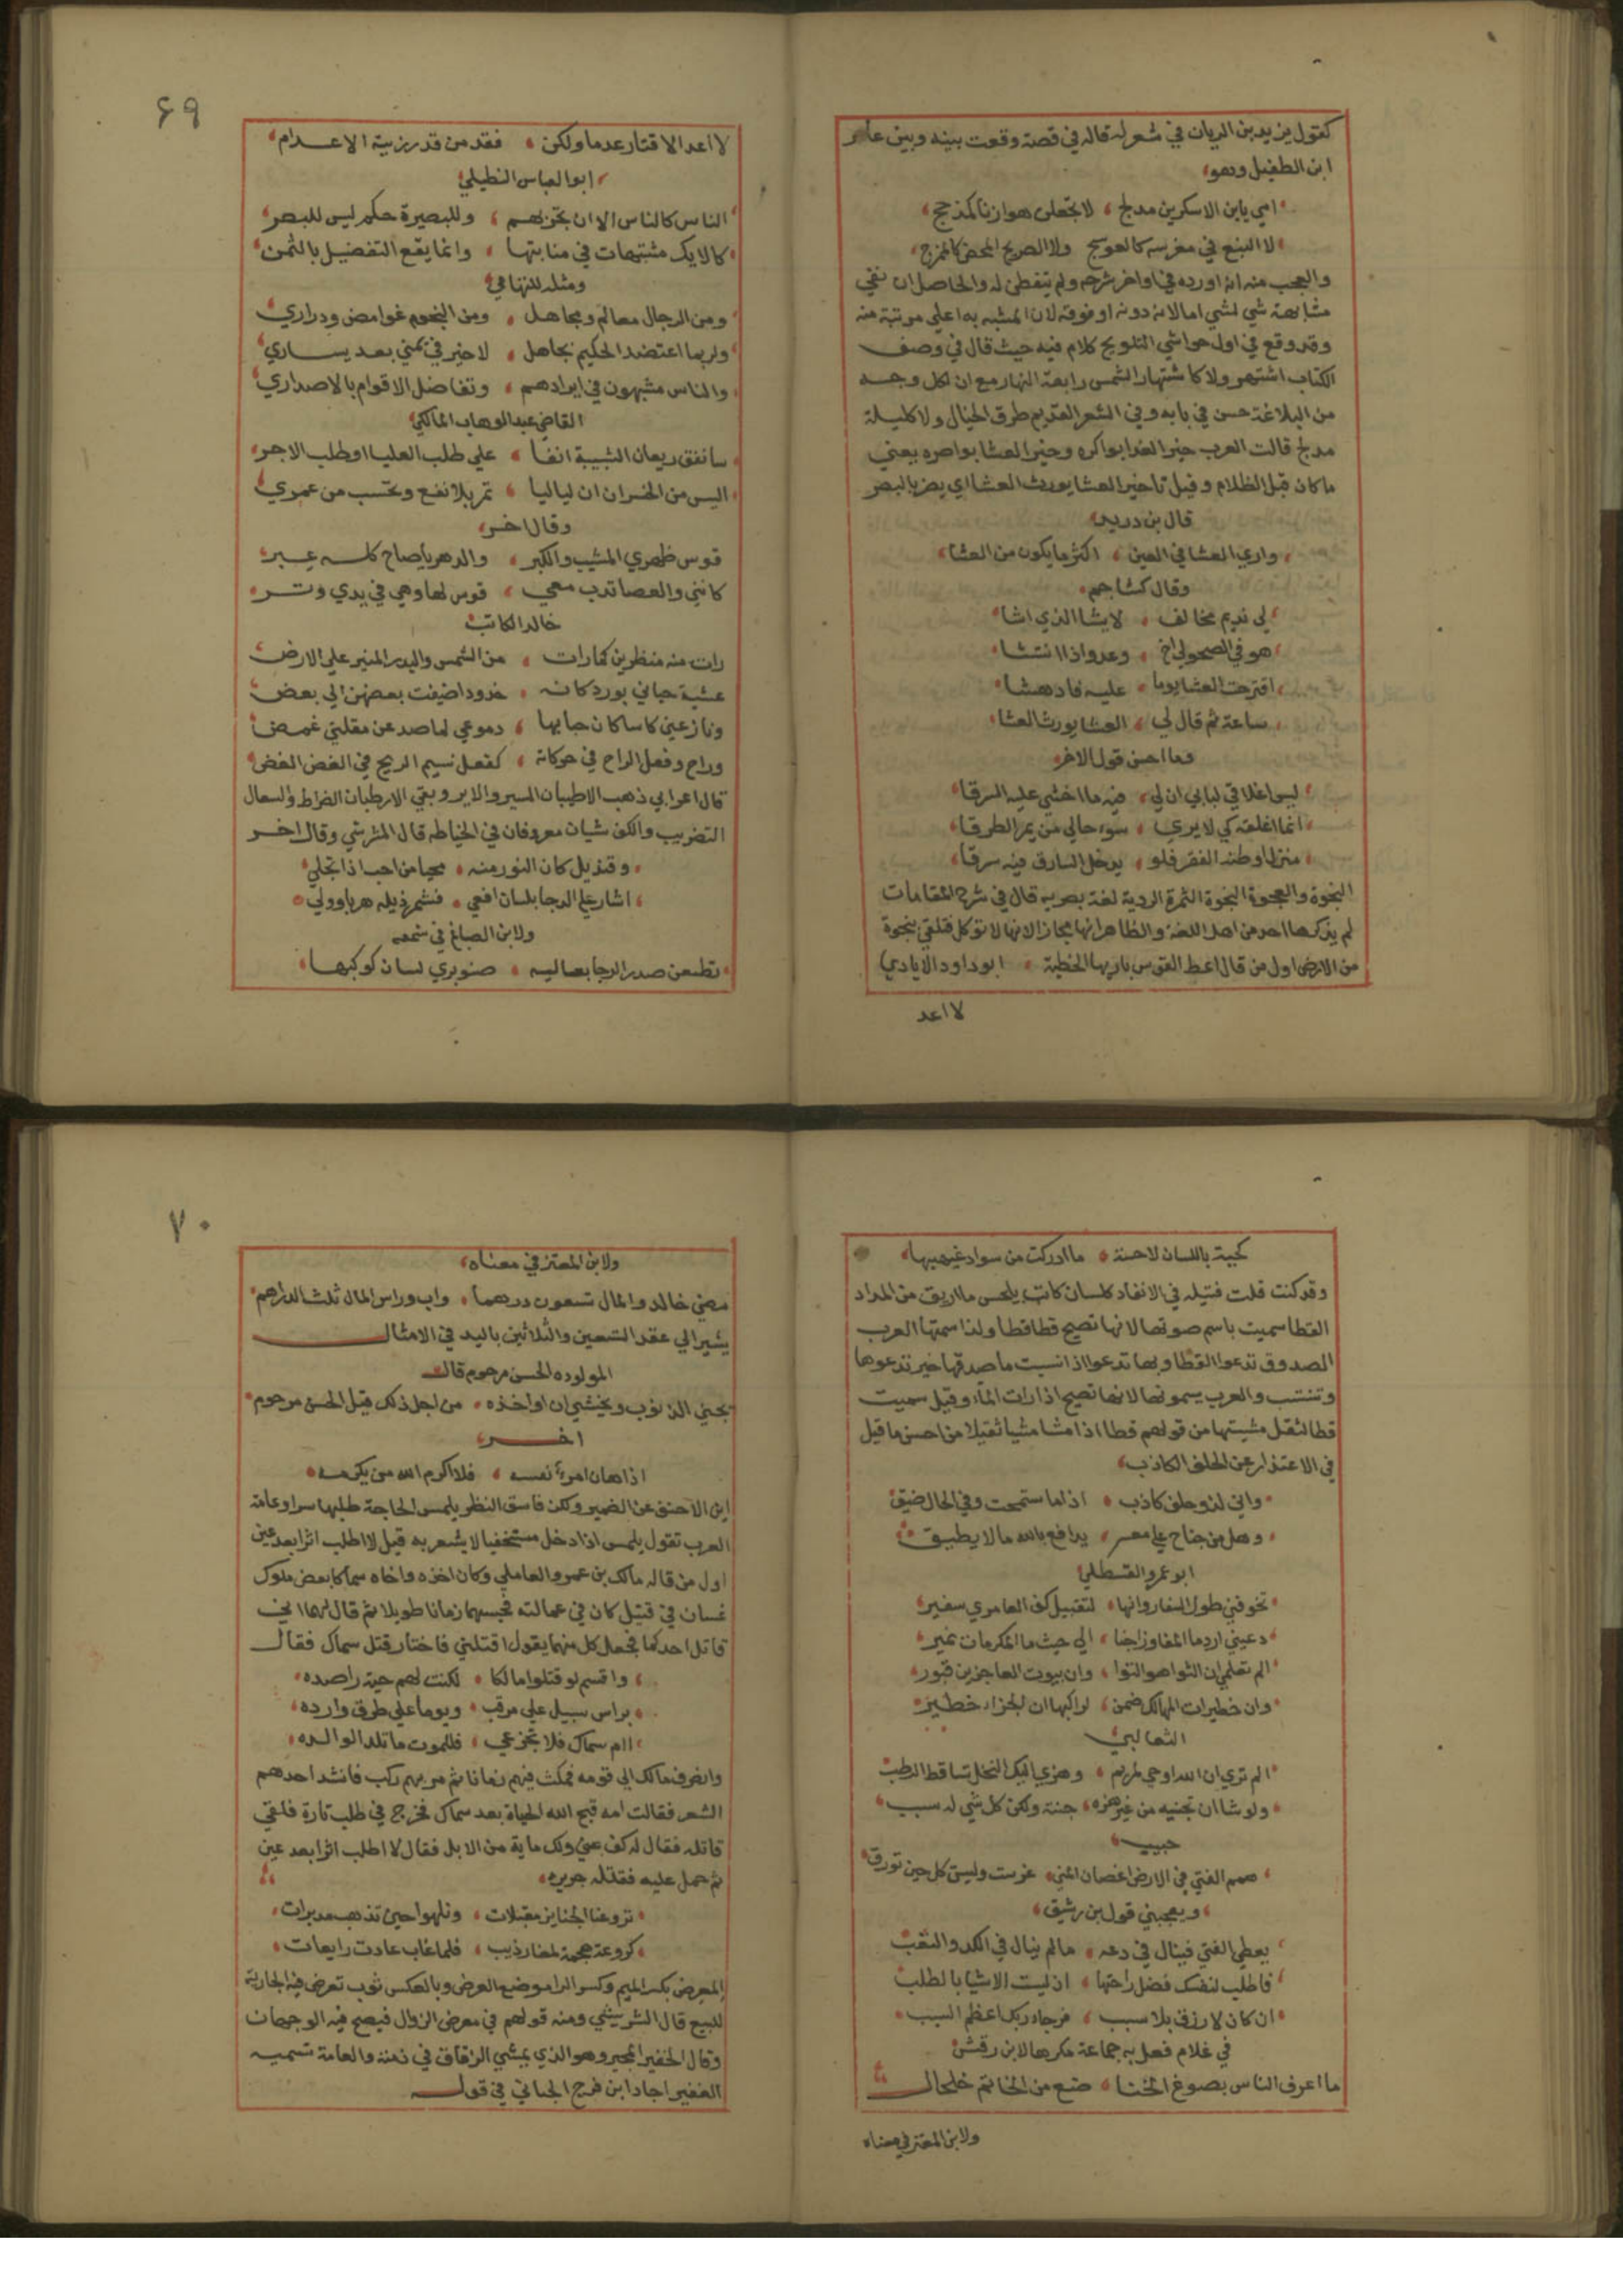 كقول يزيد بن الريان في شعر له قاله في قصة وقعت بينه وبين عامر
ابن الطفيل وهو
امي يابن الاسكرين مدلج لا تجعلن هوازنا كمذحج
لا النبع في مغرسه كالعوسج ولا الصريح المحض كالممزج
والعجب منه انه اورده في اواخر شرحه ولم يتفطن له والحاصل ان نفي
مشابهة شي لشي اما لانه دونه او فوقه لان المشبه به اعلي مرتبة منه
وقد وقع في اول حواشي التلويح كلام فيه حيث قال في وصف
الكتاب اشتهر ولا كاشتهار الشمس رابعة النهار مع ان لكل وجه
من البلاغة حسن في بابه وفي الشعر القديم طرق الخيال ولا كليلة
مدلج قالت العرب خير الغدا بواكره وخير العشا بواصره يعني
ما كان قبل الظلام وقيل تاخير العشا يورث العشا اي يضر بالبصر
قال بن دريد
واري العشا في العين اكثر ما يكون من العشاء
وقال كشاجم
لي نديم مخالف لا يشا الذي اشا
هو في الصحو لي اخ وعدو اذا انتشا
اقترحت العشا يوما عليه فادهشا
ساعة ثم قال لي العشا يورث العشا
فما احسن قول الاخر
ليس اغلاقي لبابي ان لي فيه ما اخشي عليه السرقا
انما اغلقه كي لا يري سوء حالي من يمر الطرقا
منزل اوطنه الفقر فلو يدخل السارق فيه سرقا
النجوة والعجوة النجوة الثمرة الردية لغة بصريه قال في شرح المقامات
لم يذكرها احد من اهل اللغة والظاهر انها مجاز لانها لا توكل فتلقي بنجوة
من الارض اول من قال اعط القوس باريها الحطية ابو داود الايادي
لا اعد
٦٩
لا اعد الاقتار عدما ولكن فقد من قد رزيته الاعدام
ابو العباس التطيلي
الناس كالناس الا ان تجربهم وللبصيرة حكم ليس للبصر
كالايك مشتبهات في منابتها وانما يقع التفضيل بالثمن
ومثله للتهامي
ومن الرجال معالم ومجاهل ومن النجوم غوامض ودراري
ولربما اعتضد الحكيم بجاهل لا خير في يمني بعد يساري
والناس مشبهون في ايرادهم وتفاضل الاقوام بالاصداري
القاضي عبد الوهاب المالكي
سانفق ريعان الشبيبة انفا علي طلب العليا او طلب الاجر
اليس من الخسران ان لياليا تمر بلا نفع وتحسب من عمري
وقال اخر
قوس ظهري المشيب والكبر والدهر يا صاح كله عبر
كانني والعصا تدب معي قوس لها وهي في يدي وتر
خالد الكاتب
رات منه منظرين كما رات من الشمس والبدر المنير علي الارض
عشية حياني بورد كانه خدود اضيفت بعضهن الي بعض
ونازعني كاسا كان حبابها دموعي لما صد عن مقلتي غمض
وراح وفعل الراح في حركاته كفعل نسيم الريح في الغصن الغض
قال اعرابي ذهب الاطيبان السير والاير وبقي الارطبان الضراط والسعال
التضريب والكف شيان معروفان في الخياطه قال الشريشي وقال اخر
وقنديل كان النور منه محيا من احب اذا تجلي
اشار علي الدجا بلسان افعي فشمر ذيله هربا وولي
ولابن الصايغ في شمعه
تطعن صدر الدجا بعاليه صنوبري لسان كوكبها
كحية باللسان لاحسة ما ادركت من سواد غيهبها
وقد كنت قلت فتيله في الانقاد كلسان كاتب يلحس ما اريق من المداد
القطا سميت باسم صوتها لانها تصيح قطا قطا ولذا سمتها العرب
الصدوق تدعوا القطا وبها تدعوا اذا نسبت ما صدقها خير تدعوها
وتنتسب والعرب يسمونها لانها تصيح اذا رات الماء وقيل سميت
قطا لثقل مشيتها من قولهم قطا اذا مشا مشيا ثقيلا من احسن ما قيل
في الاعتذار عن الحلف الكاذب
واني لذو حلف كاذب اذا ما ستمحت وفي الحال ضيق
وهل من جناح علي معسر يدافع بالله ما لا يطيق
ابو عمرو القسطلي
تخوفني طول السفار وانها لتقبيل كف العامري سفير
دعيني ارد ما المفاوز اجنا الي حيث ما المكرمات نمير
الم تعلمي ان الثوا هو التوا وان بيوت العاجزين قبور
وان خطيرات المهالك ضمن لراكبها ان الجزاء خطير
الثعالبي
الم تري ان الله اوحي لمريم وهزي اليك النخل تساقط الرطب
ولو شا ان تجنيه من غير هزه جنته ولكن كل شي له سبب
حبيب
همم الفتي في الارض اغصان الغني غرست وليس كل حين تورق
ويعجبني قول بن رشيق
يعطي الفتي فينال في دعه ما لم ينال في الكد والتعب
فاطلب لنفسك فضل راحتها اذ ليست الاشيا بالطلب
ان كان لا رزق بلا سبب فرجاء ربك اعظم السبب
في غلام فعل به جماعة مكرها لابن رقش
ما اعرف الناس بصوغ الخنا صنع من الخاتم خلخال
ولابن المعتز في معناه
٧٠
ولابن المعتز في معناه
مضي خالد والمال تسعون درهما واب وراس المال ثلث الدراهم
يشير الي عقد التسعين والثلاثين باليد في الامثال
المولوده الحسن مرحوم قال
يجني الذنوب ويخشي ان اواخذه من اجل ذلك قيل الحسن مرحوم
اخر
اذا هان امرء نفسه فلا اكرم الله من يكرمه
ابن الاحنق عف الضمير ولكن فاسق النظر يلمس الحاجة طلبها سرا وعامة
العرب تقول يلمس اذا دخل مستخفيا لا يشعر به قيل لا اطلب اثرا بعد عين
اول من قاله مالك بن عمرو العاملي وكان اخذه واخاه سماكا بعض ملوك
غسان في قتيل كان في عمالته فحبسهما زمانا طويلا ثم قال لهما اني
قاتل احدكما فجعل كل منهما يقول اقتلني فاختار قتل سماك فقال
واقسم لو قتلوا مالكا لكنت لهم حية راصده
براس سبيل علي مرقب ويوما علي طرق وارده
اام سماك فلا تجزعي فللموت ما تلد الوالده
وانصرف مالك الي قومه فمكث فيهم زمانا ثم مر بهم ركب فانشد احدهم
الشعر فقالت امه قبح الله الحياة بعد سماك فخرج في طلب ثارة فلقي
قاتله فقال له كف عني ولك ماية من الابل فقال لا اطلب اثرا بعد عين
ثم حمل عليه فقتله جريره
تروعنا الجنايز مقبلات ونلهوا حين تذهب مدبرات
كروعة هجمة لمغار ذيب فلما غاب عادت رايعات
المعرض بكسر الميم وكسر الرا موضع العرض وبالعكس ثوب تعرض فيه الجارية
للبيع قال الشريشي ومنه قولهم في معرض الزوال فيصح فيه الوجهان
وقال الخفير المجير وهو الذي يمشي الرفاق في ذمته والعامة تسميه
الغفير اجاد ابن فرج الجياني في قوله